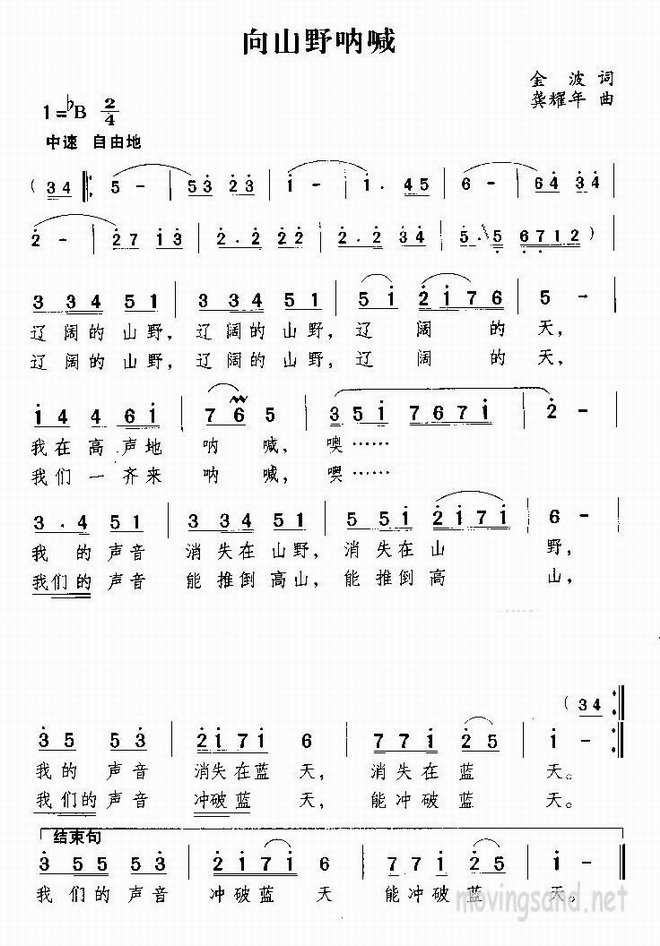 向山野呐喊
金 波 词
龚耀年 曲
1=♭B 2/4
中速 自由地
( 3 4 5 - 5 3 2 3 1 - 1 . 4 5 6 - 6 4 3 4
2 - 2 7 1 3 2 . 2 2 2 2 . 2 3 4 5 . 5 6 7 1 2 )
3 3 4 5 1 3 3 4 5 1 5 1 2 1 7 6 5 -
辽阔的山野, 辽阔的山野, 辽 阔 的 天,
辽阔的山野, 辽阔的山野, 辽 阔 的 天,
1 4 4 6 1 7 6 5 3 5 1 7 6 7 1 2 -
我在高声地 呐 喊, 噢……
我们一齐来 呐 喊, 噢……
3 . 4 5 1 3 3 4 5 1 5 5 1 2 1 7 1 6 -
我 的声音 消失在山野, 消失在山 野,
我们的声音 能推倒高山, 能推倒高 山,
( 3 4
3 5 5 3 2 1 7 1 6 7 7 1 2 5 1 -
我的声音 消失在蓝 天, 消失在蓝 天。
我们的声音 冲破蓝 天, 能冲破蓝 天。
结束句
3 5 5 5 3 2 1 7 1 6 7 7 1 2 5 1 -
我们的声音 冲破蓝 天 能冲破蓝 天。
movingsand.net